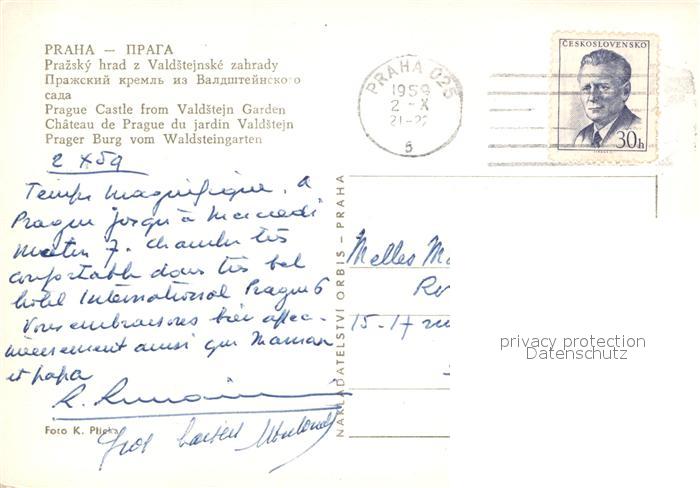 PRAHA — ПРАГА
Pražský hrad z Valdštejnské zahrady
Пражский кремль из Валдштейнского
сада
Prague Castle from Valdštejn Garden
Château de Prague du jardin Valdštejn
Prager Burg vom Waldsteingarten
ČESKOSLOVENSKO
30h
PRAHA 025
1959
2-X
21-22
5
2 X 59
Temps magnifique. à
Prague jusqu'à Mercredi
matin 7. chambre très
confortable dans très bel
hôtel International Prague 6
Vous embrassons bien affec-
tueusement ainsi que Maman
et papa
Gros baisers
Foto K. Plicka
NAKLADATELSTVÍ ORBIS – PRAHA
Melles
15-17
privacy protection
Datenschutz